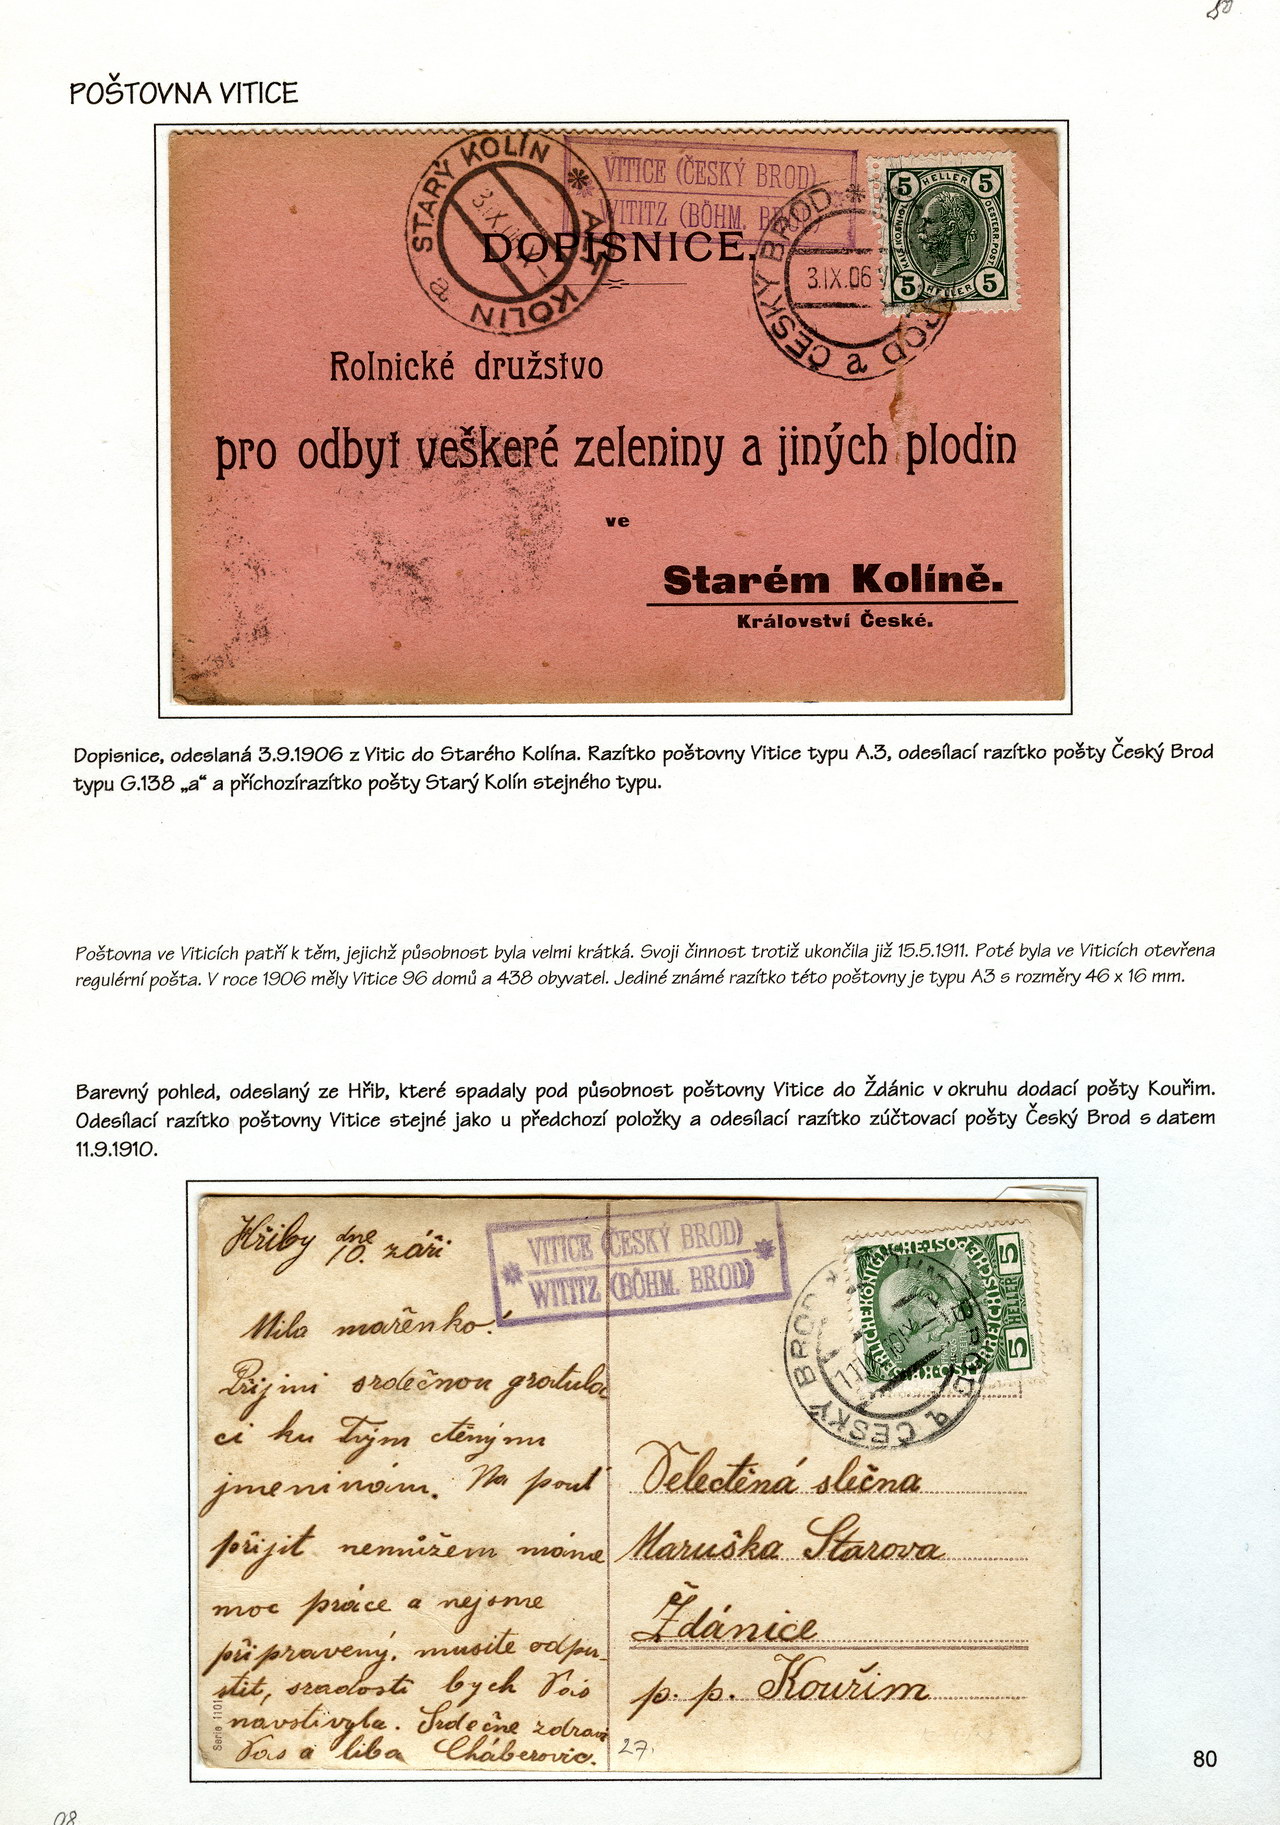 80
POŠTOVNA VITICE
STARÝ KOLÍN * ALT KOLIN a
3.IX.06
VITICE (ČESKÝ BROD)
WITITZ (BÖHM. BROD)
ČESKÝ BROD *
BROD a
3.IX.06
5 HELLER 5
KAIS. KOENIGL. OESTERR. POST.
5 HELLER 5
DOPISNICE.
Rolnické družstvo
pro odbyt veškeré zeleniny a jiných plodin
ve
Starém Kolíně.
Království České.
Dopisnice, odeslaná 3.9.1906 z Vitic do Starého Kolína. Razítko poštovny Vitice typu A.3, odesílací razítko pošty Český Brod
typu G.138 „a“ a příchozírazítko pošty Starý Kolín stejného typu.
Poštovna ve Viticích patří k těm, jejichž působnost byla velmi krátká. Svoji činnost trotiž ukončila již 15.5.1911. Poté byla ve Viticích otevřena
regulérní pošta. V roce 1906 měly Vitice 96 domů a 438 obyvatel. Jediné známé razítko této poštovny je typu A3 s rozměry 46 x 16 mm.
Barevný pohled, odeslaný ze Hřib, které spadaly pod působnost poštovny Vitice do Ždánic v okruhu dodací pošty Kouřim.
Odesílací razítko poštovny Vitice stejné jako u předchozí položky a odesílací razítko zúčtovací pošty Český Brod s datem
11.9.1910.
Hřiby dne
10. září
VITICE (ČESKÝ BROD)
WITITZ (BÖHM. BROD)
ČESKÝ BROD *
BROD
5 HELLER 5
Milá mařenko!
Přijmi srdečnou gratula
ci ku Tvým ctěným
jmeninám. Na pouť
přijít nemůžem máme
moc práce a nejsme
připravený, musíte odpu-
stit, sradostí bych Vás
navštívyla. Srdečne zdraví
Vás a líbá Cháberovic.
Serie 1101
27.
Velectěná slečna
Maruška Starova
Ždánice
p. p. Kouřim
80
08